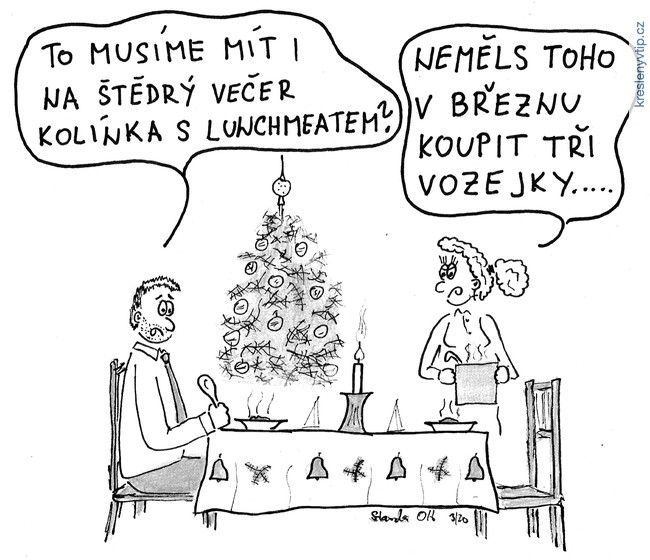 TO MUSÍME MÍT I
NA ŠTĚDRÝ VEČER
KOLÍNKA S LUNCHMEATEM?
NEMĚLS TOHO
V BŘEZNU
KOUPIT TŘI
VOZEJKY.....
kreslenyvtip.cz
Standa OK 3/20